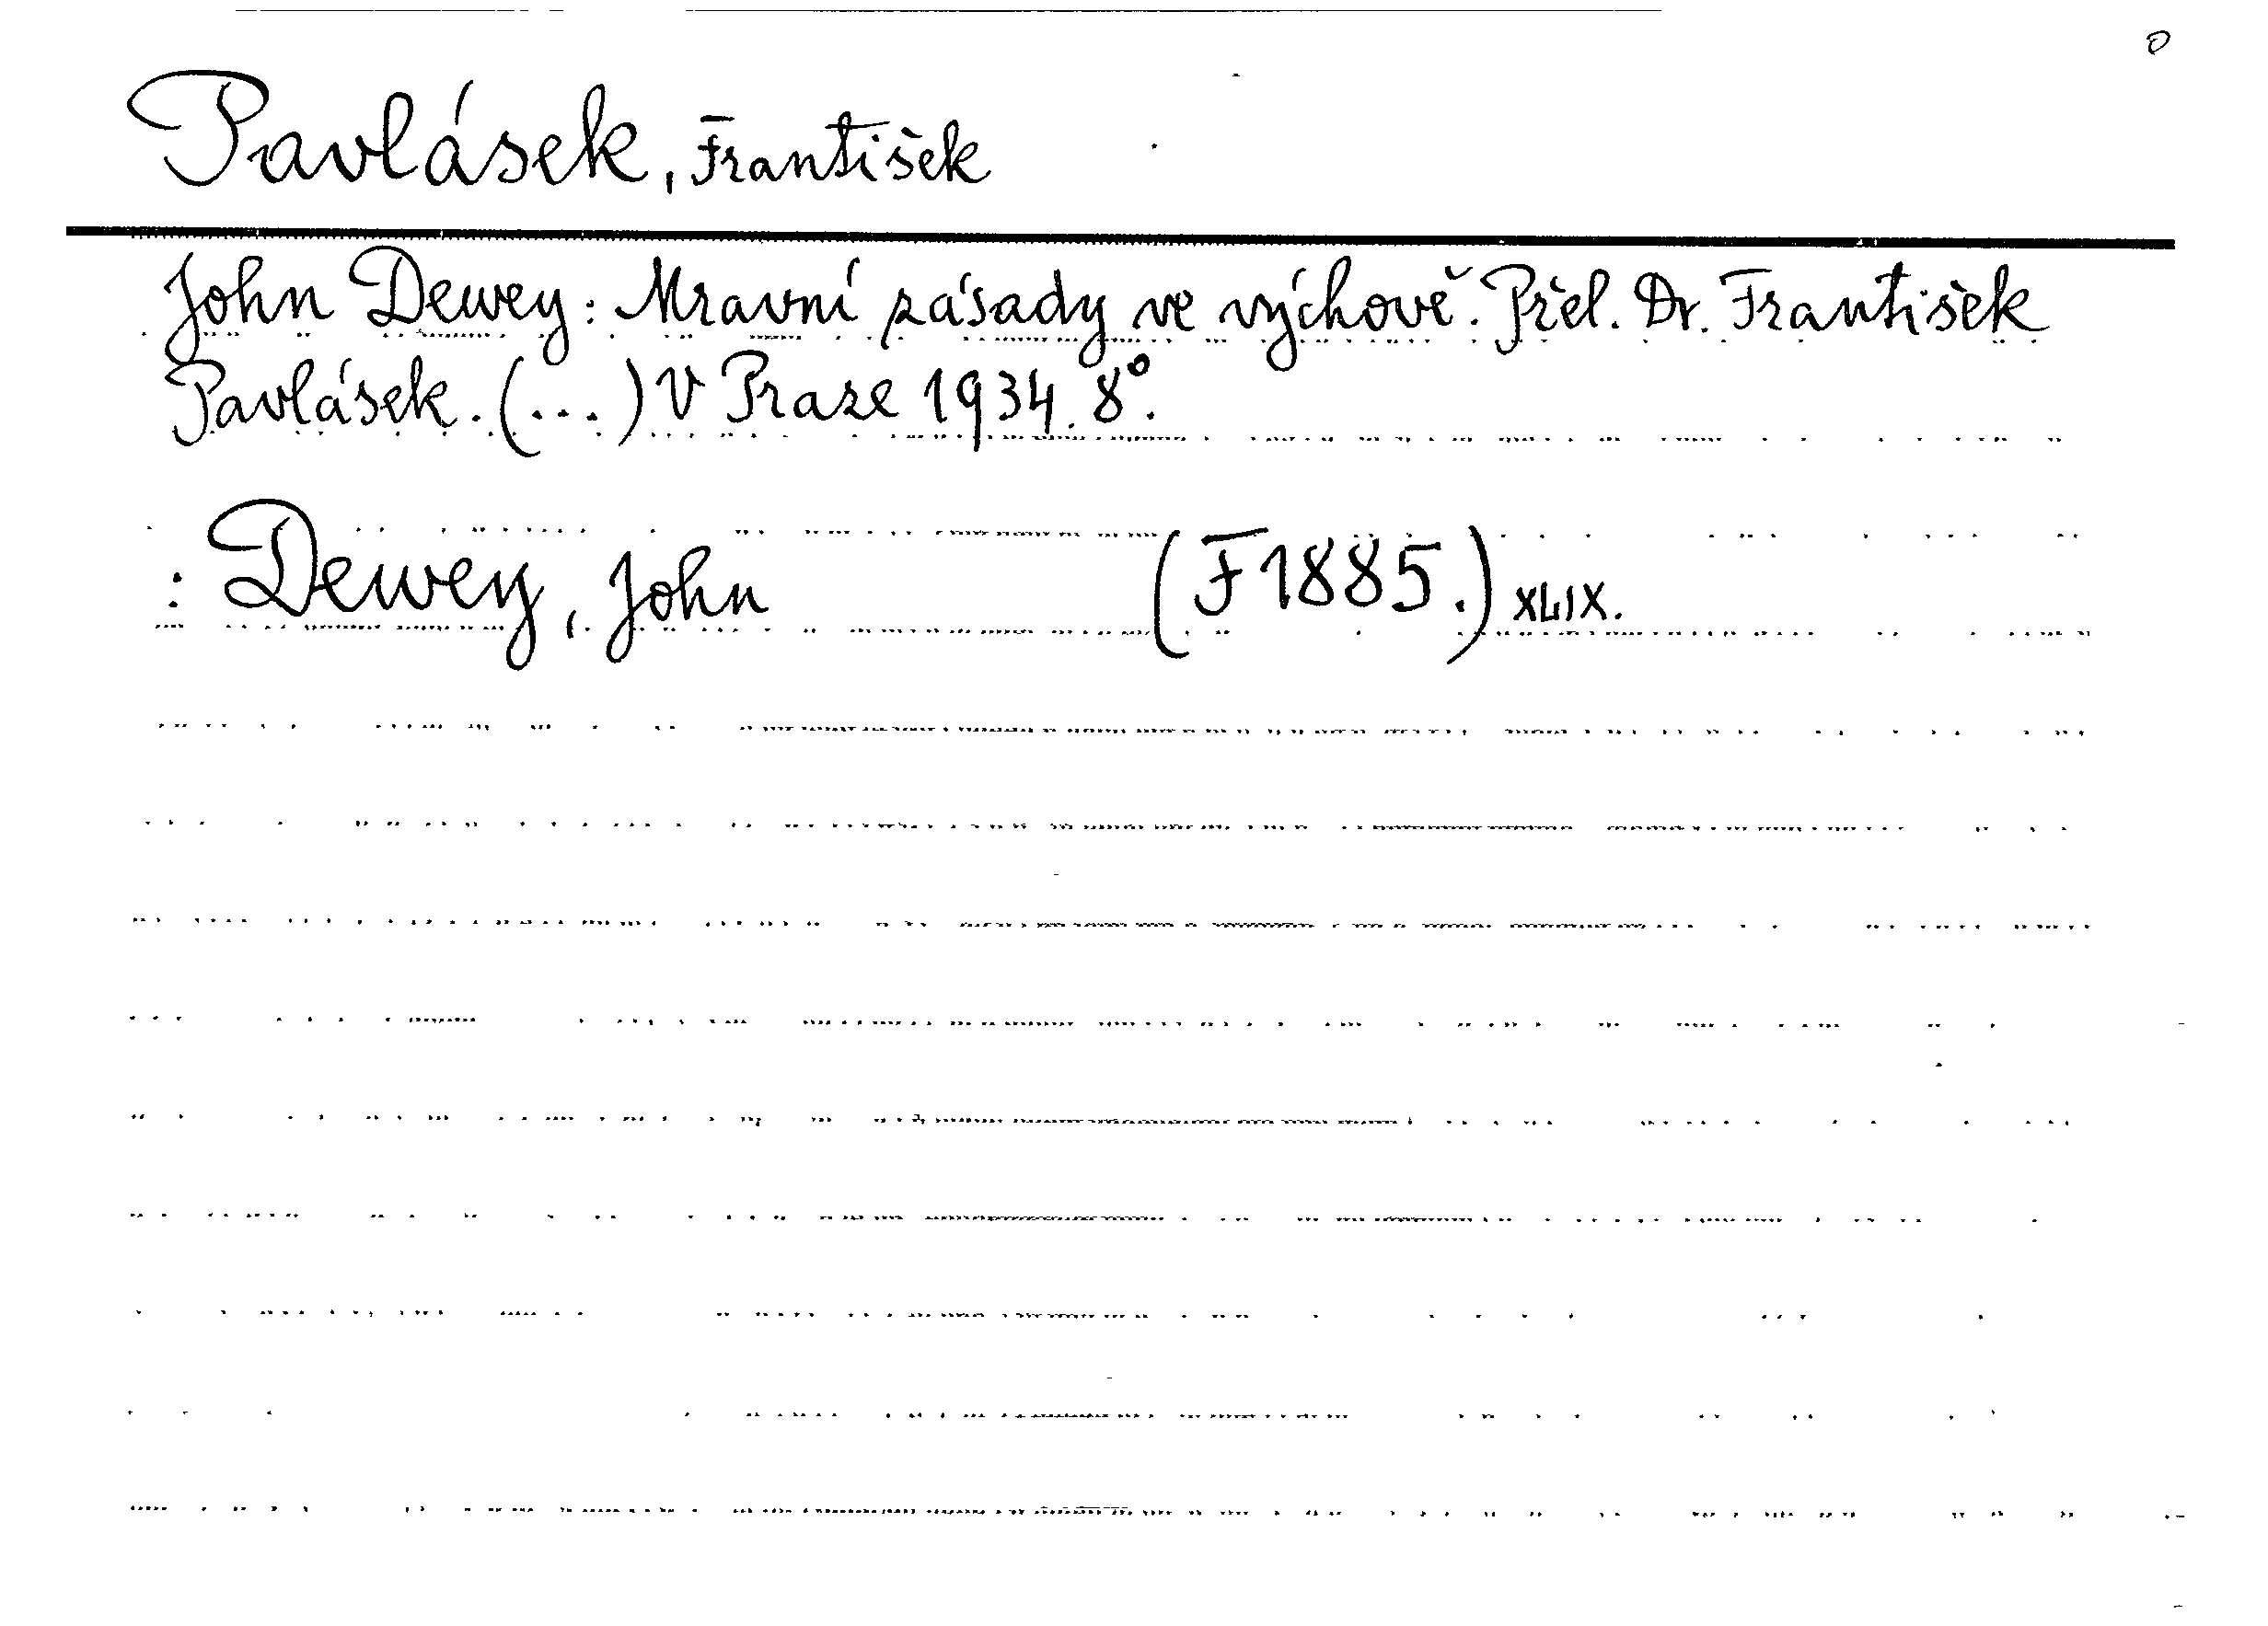 Pavlásek, František
John Dewey: Mravní zásady ve výchově. Přel. Dr. František
Pavlásek. (...) V Praze 1934. 8°.
: Dewey, John (F1885.) XLIX.